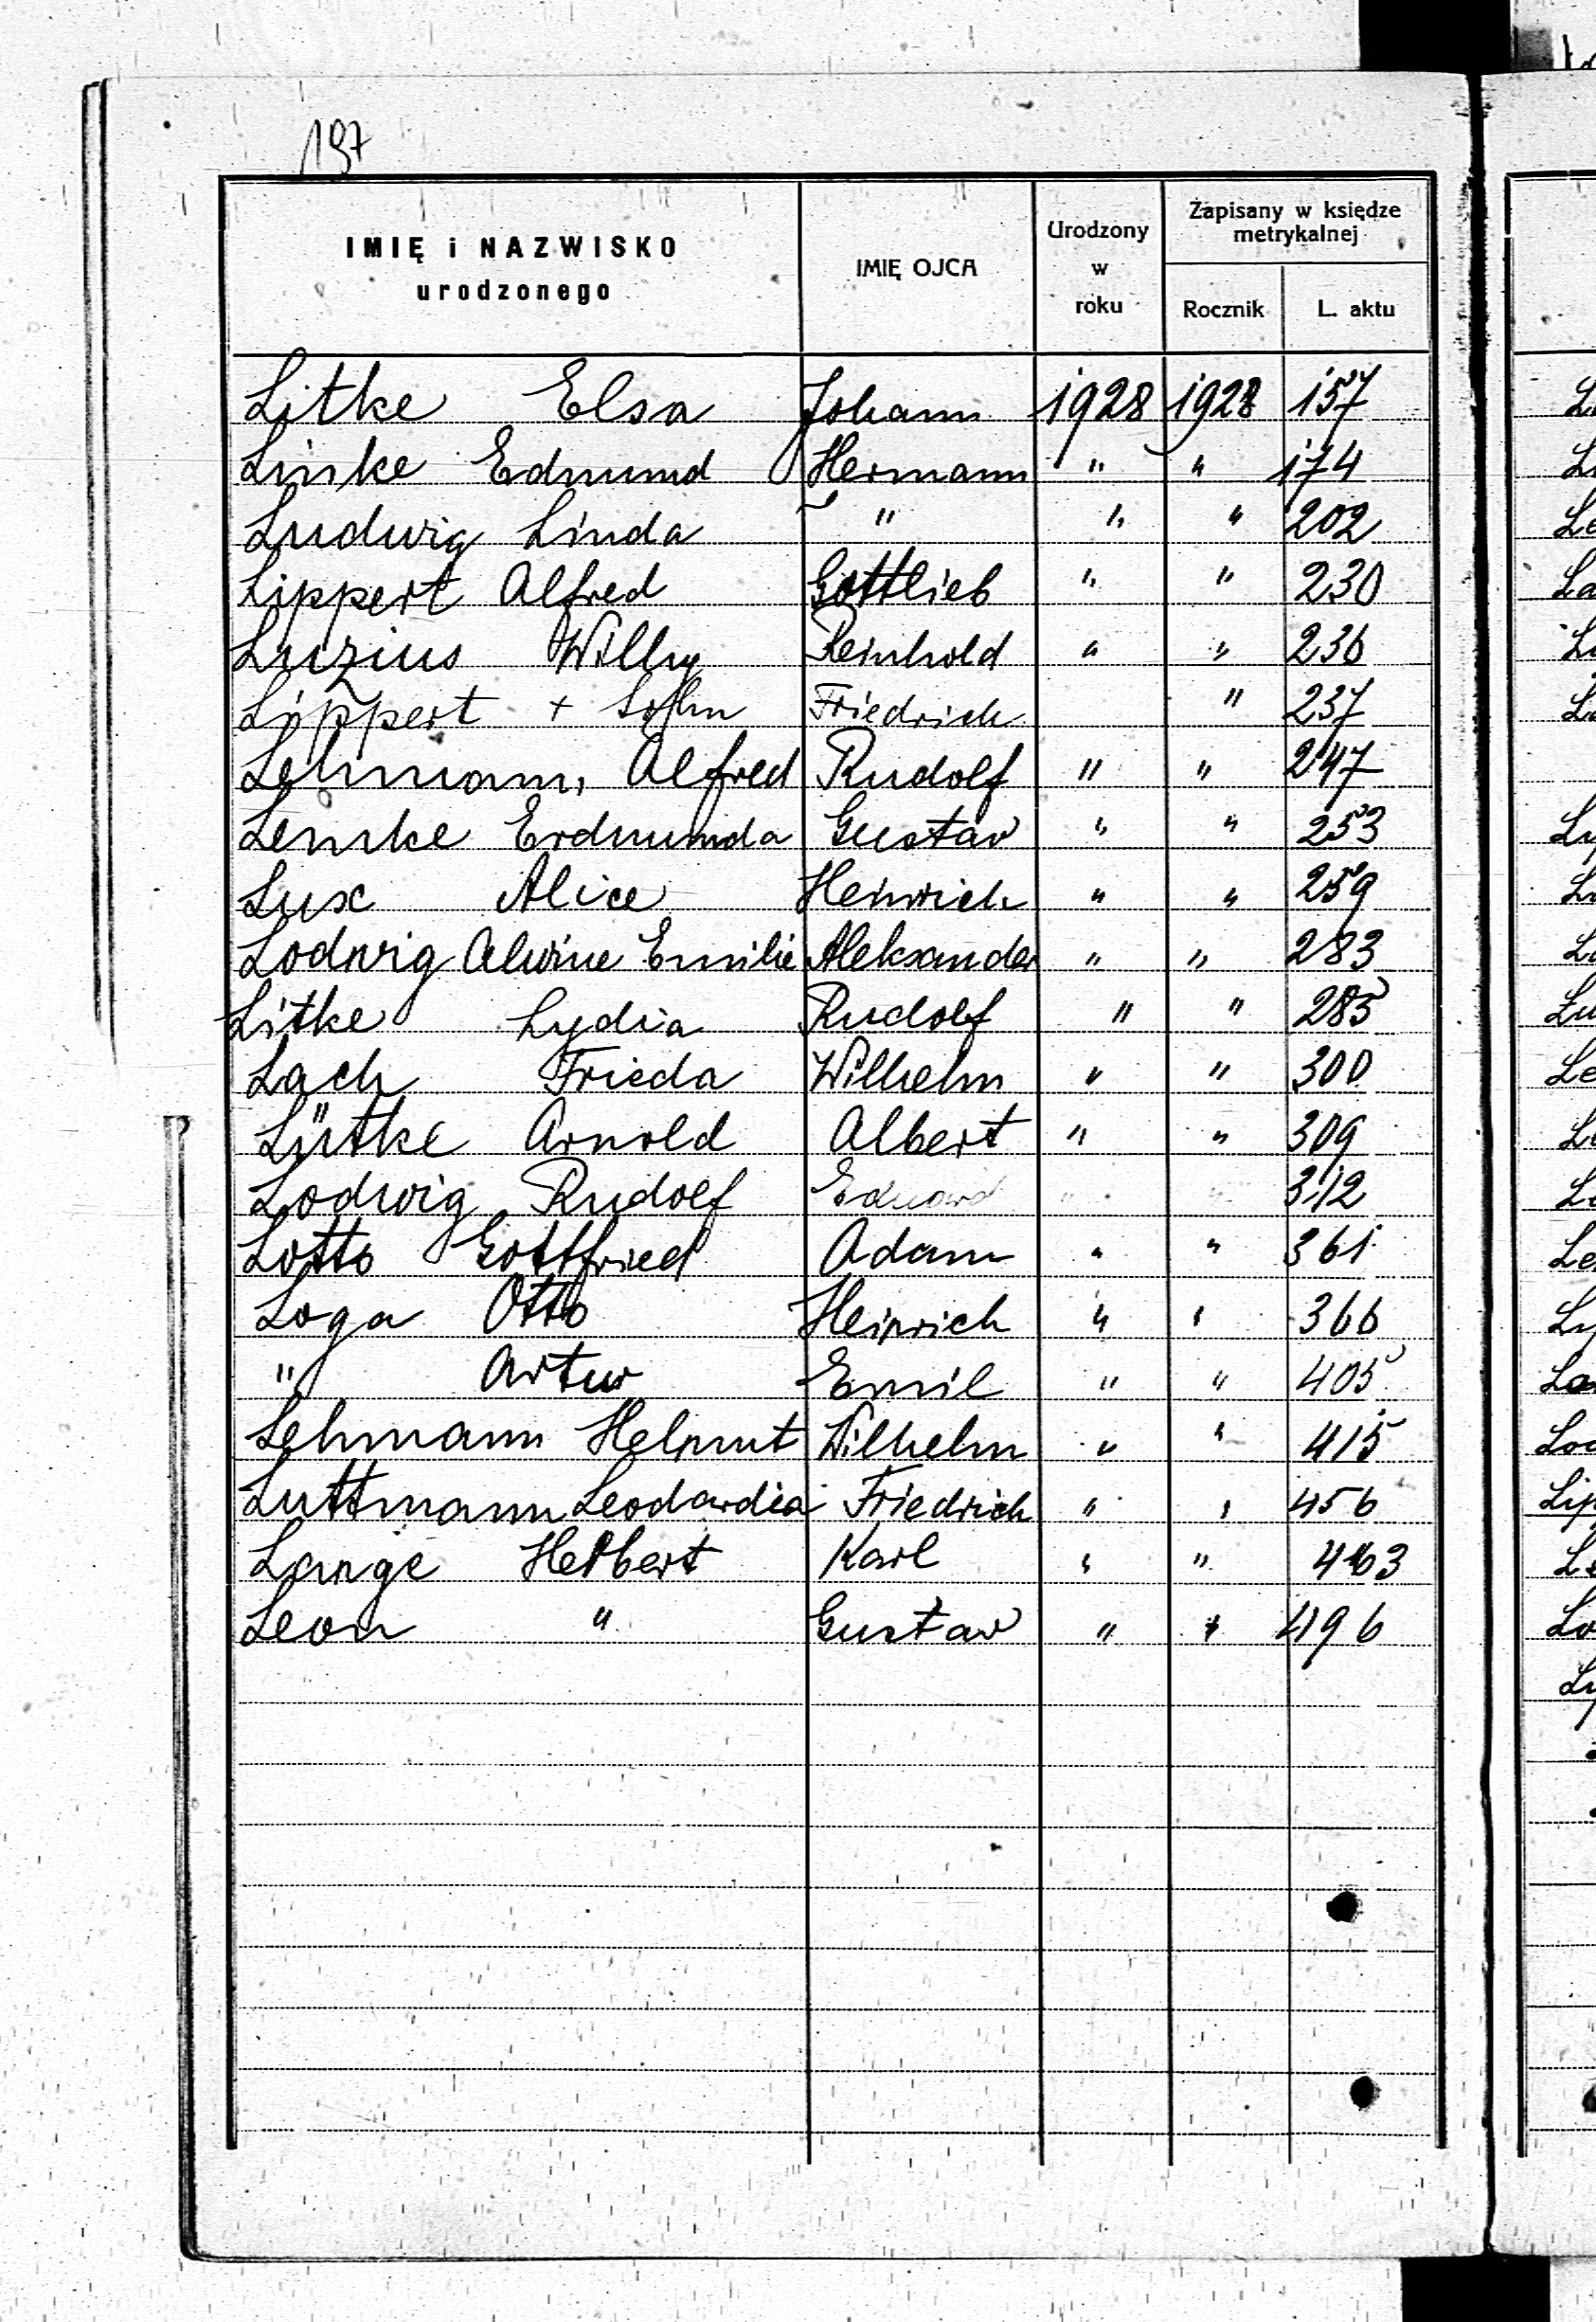 197
IMIĘ i NAZWISKO urodzonego | IMIĘ OJCA | Urodzony w roku | Zapisany w księdze metrykalnej
Rocznik | L. aktu
Litke Elsa Johann 1928 1928 157
Linke Edmund Hermann " " 174
Ludwig Linda " " " 202
Lippert Alfred Gottlieb " " 230
Luzius Willy Reinhold " " 236
Lippert + Sohn Friedrich " 237
Lehmann, Alfred Rudolf " " 247
Lemke Erdmunda Gustav " " 253
Lux Alice Heinrich " " 259
Lodwig Alwine Emilie Aleksander " " 283
Litke Lydia Rudolf " " 285
Lach Frieda Wilhelm " " 300
Lütke Arnold Albert " " 309
Lodwig Rudolf Eduard " " 312
Lotto Gottfried Adam " " 361
Loga Otto Heinrich " " 366
" Artur Emil " " 405
Lehmann Helmut Wilhelm " " 415
Luttmann Leocardia Friedrich " " 456
Lange Herbert Karl " " 463
Leon " Gustav " " 496